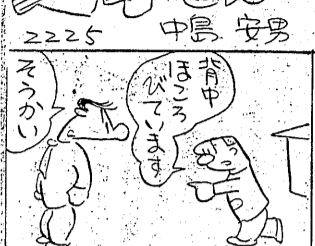 2225
中島 安男
背中
ほころ
びています
そうかい